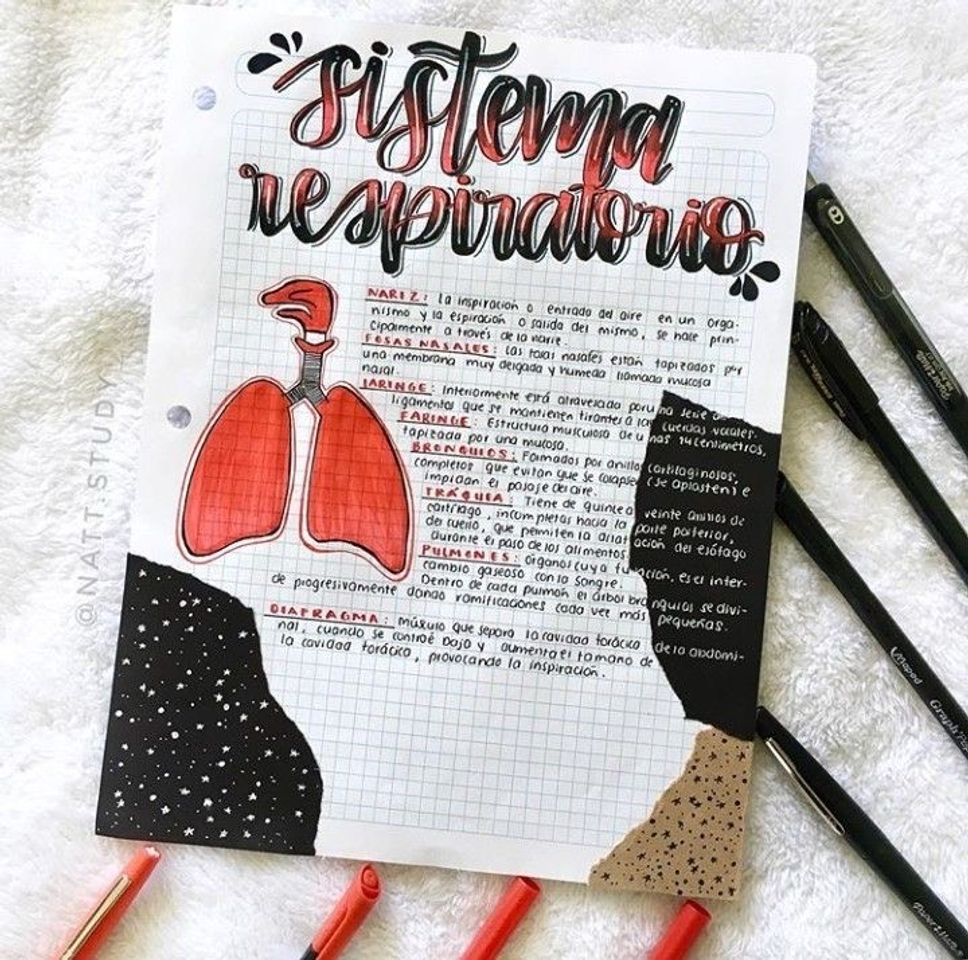 sistema
respiratorio
NARIZ: La inspiración o entrada del aire en un orga-
nismo y la espiración o salida del mismo, se hace prin-
cipalmente a través de la narie.
FOSAS NASALES: Las fosas nasales están tapizados por
una membrana muy delgada y humeda llamada mucosa
nasal.
LARINGE: Interiormente está atravesada por una serie de
ligamentos que se mantienen tirantes a las cuerdas vocales.
FARINGE: Estructura musculosa de unos 14 centimetros,
tapizada por una mucosa.
BRONQUIOS: Formados por anillos cartilaginosos,
completos que evitan que se colapsen (se aplasten) e
impidan el pasaje del aire.
TRÁQUIA: Tiene de quince a veinte anillos de
cartílago, incompletos hacia la parte posterior,
del cuello, que permiten la dilatación del esófago
durante el paso de los alimentos
PULMONES: órganos cuya función, es el inter-
cambio gaseoso con la sangre.
Dentro de cada pulmón el árbol bronquios se divi-
de progresivamente dando ramificaciones cada vez más pequeñas.
DIAFRAGMA: Músculo que separa la cavidad torácica de la abdomi-
nal, cuando se contraé baja y aumenta el tamano de
la cavidad torácica, provocando la inspiración.
@NATT.STUDY